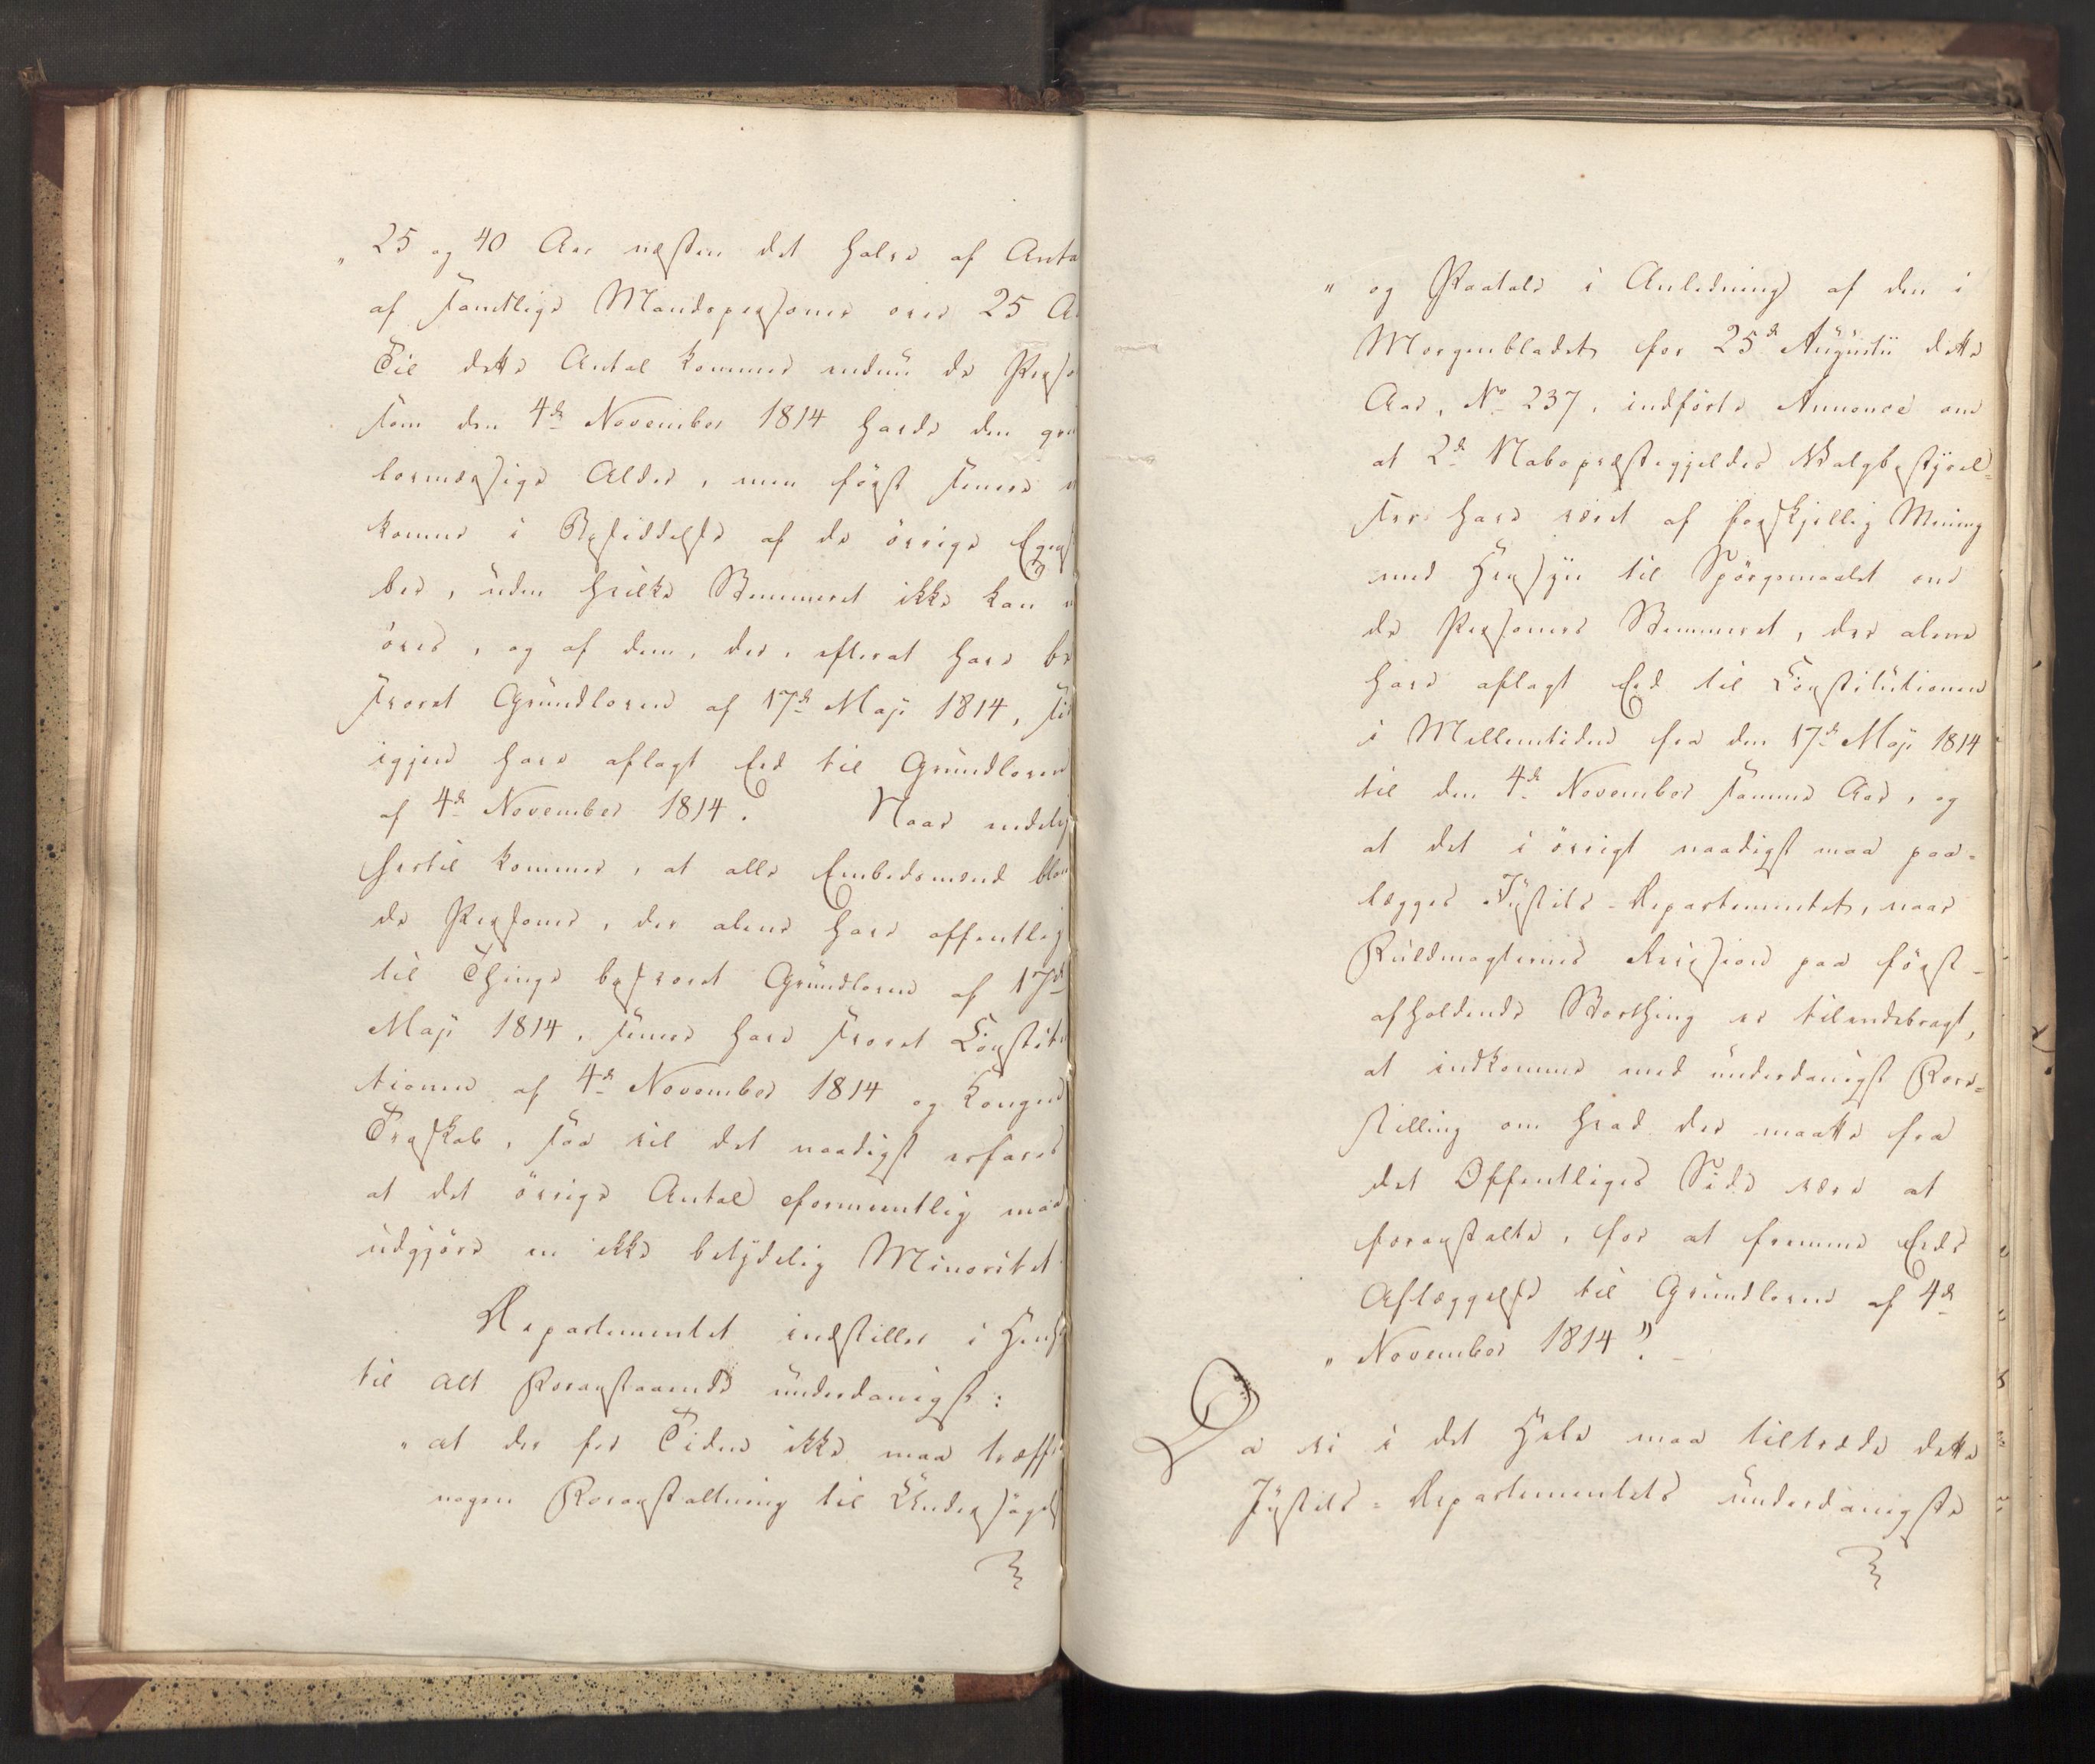 „ 25 og 40 Aar næsten det halve af Anta
af samtlige Mandspersoner over 25 A
Til dette Antal kommer endnu de Perso
som den 4de November 1814 havde den gru
lovmæssige Alder, men først senere
komne i Besiddelse af de övrige Egens
ber, uden hvilke Stemmeret ikke kan
öves, og af dem, der, efterat have be
svoret Grundloven af 17de Maji 1814,
igjen have aflagt Eed til Grundloven
af 4de November 1814. Naar endelig
hertil kommer, at alle Embedsmænd blan
de Personer, der alene have offentlig
til Things besvoret Grundloven af 17de
Maji 1814, senere have svoret Constitu
tionen af 4de November 1814 og Kongen
Troskab, saa vil det naadigst erfares
at det övrige Antal formeentlig maa
udgjöre en ikke betydelig Minoritet
Departementet indstiller i Hens
til alt Foranstaaende underdanigst:
„ at der for Tiden ikke maa træffe
nogen Foranstaltning til Undersøgels
„ og Paatale i Anledning af den i
Morgenbladet for 25de Augustii dette
Aar, No 237, indförte Annonce om
at 2de Nabopræstegjelders Valgbestyrel=
ser have været af forskjellig Mening
med Hensyn til Spörgsmaalet om
de Personers Stemmeret, der alene
have aflagt Eed til Constitutionen
i Mellemtiden fra den 17de Maji 1814
til den 4de November samme Aar, og
at det i övrigt naadigst maa paa-
lægges Justits-Departementet, naar
Fuldmagternes Revision paa först-
afholdende Storthing er tilendebragt,
at indkomme med underdanigst Fore=
stilling om hvad der maatte fra
det Offentliges Side være at
foranstalte, for at fremme Eeds
Aflæggelse til Grundloven af 4de
„ November 1814".
Da vi i det Hele maa tiltræde dette
Justits=Departementets underdanigste